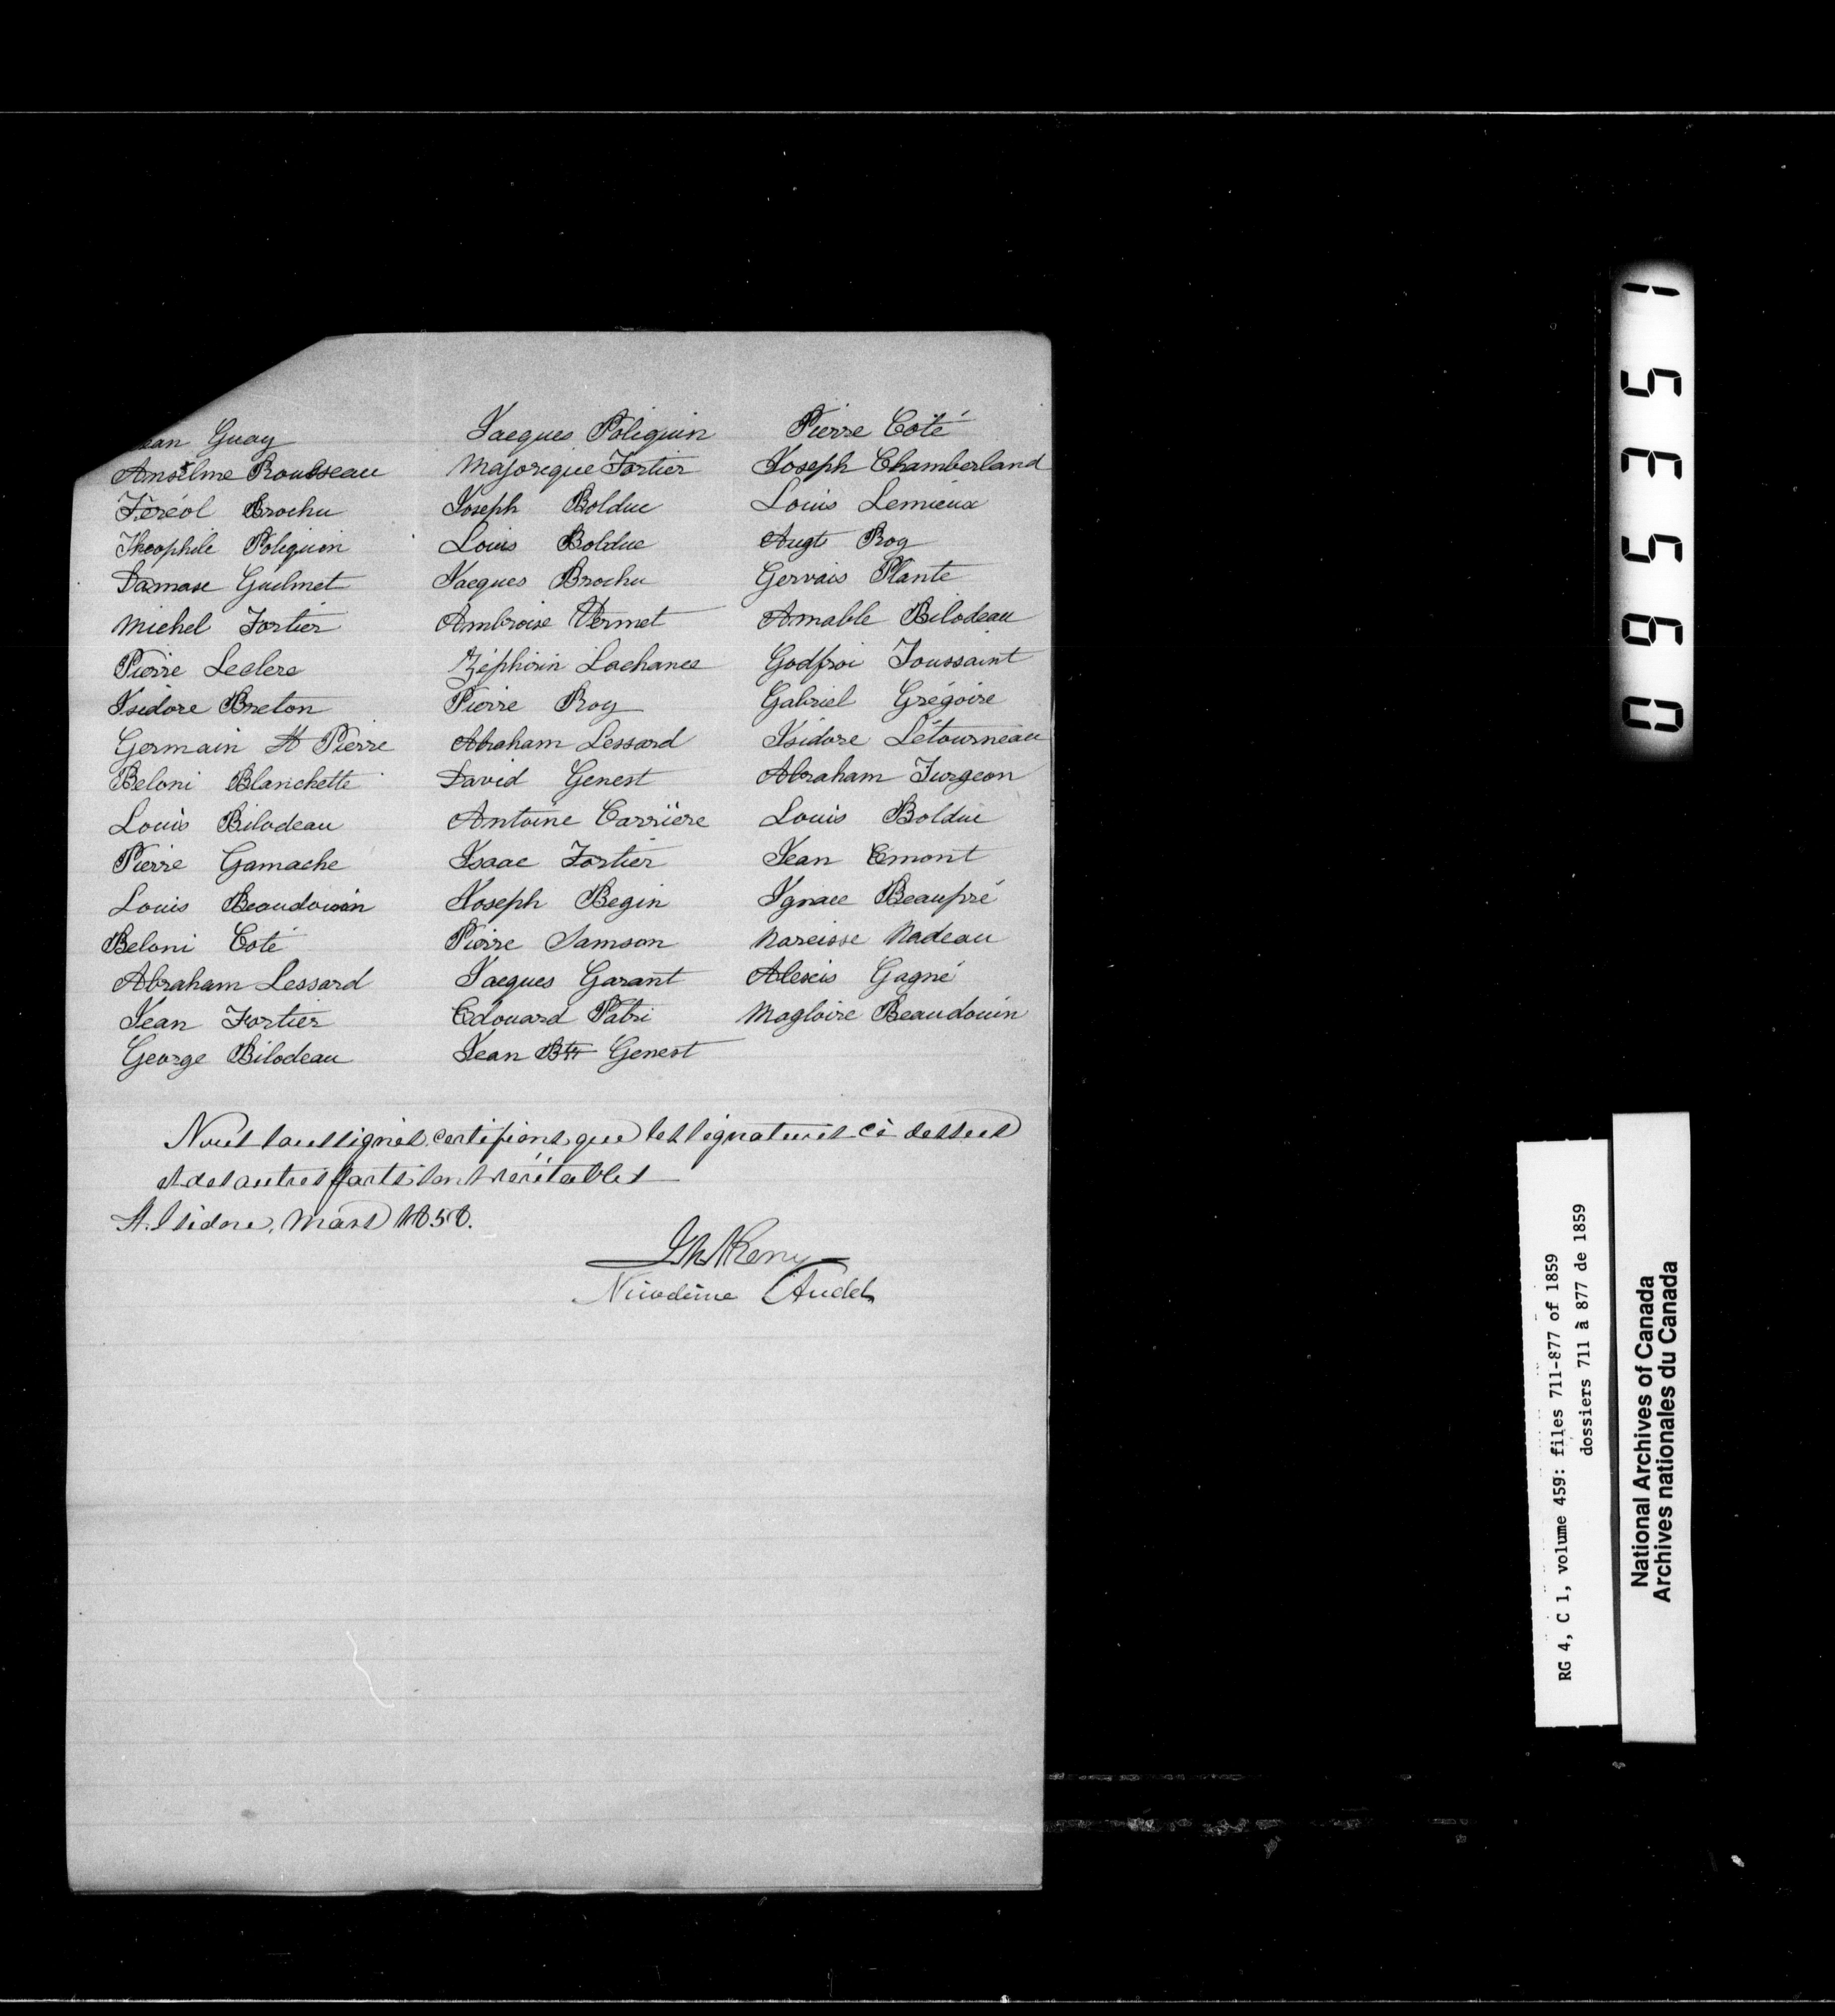 Jean Guay Jacques Poliquin Pierre Coté
Anselme Rousseau Majorique Fortier Joseph Chamberland
Féréol Brochu Joseph Bolduc Louis Lemieux
Theophile Poliquin Louis Bolduc Augte Roy
Damase Guilmet Jacques Brochu Gervais Plante
Michel Fortier Ambroise Vermet Amable Bilodeau
Pierre Leclerc Zéphirin Lachance Godfroi Toussaint
Isidore Breton Pierre Roy Gabriel Grégoire
Germain St Pierre Abraham Lessard Isidore Létourneau
Beloni Blanchette David Genest Abraham Turgeon
Louis Bilodeau Antoine Carrière Louis Bolduc
Pierre Gamache Isaac Fortier Jean Emont
Louis Beaudouin Joseph Begin Ignace Beaupré
Beloni Coté Pierre Samson Narcisse Nadeau
Abraham Lessard Jacques Garant Alexis Gagné
Jean Fortier Edouard Patri Magloire Beaudouin
George Bilodeau Jean Bte Genest
Nous soussignés certifions que les signatures ci dessus
et des autres parts sont véritables
St. Isidore, Mars 1858.
Nicodème Audet
096351
RG 4, C 1, volume 459: files 711-877 of 1859
dossiers 711 à 877 de 1859
National Archives of Canada
Archives nationales du Canada